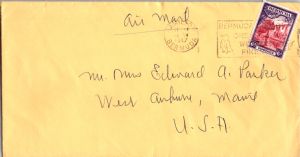 Air Mail
BERMUDA
BERMUDA
Mr. Mrs Edward A. Parker
West Auburn, Maine
U. S. A